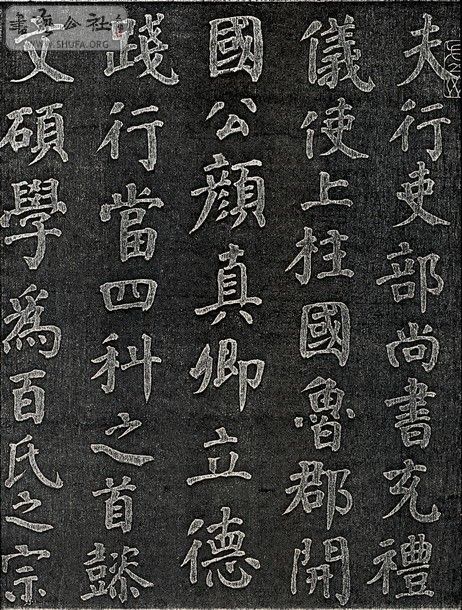 夫行吏部尚書充禮
儀使上柱國魯郡開
國公顏真卿立德
踐行當四科之首懿
文碩學爲百氏之宗
書法公社
WWW.SHUFA.ORG